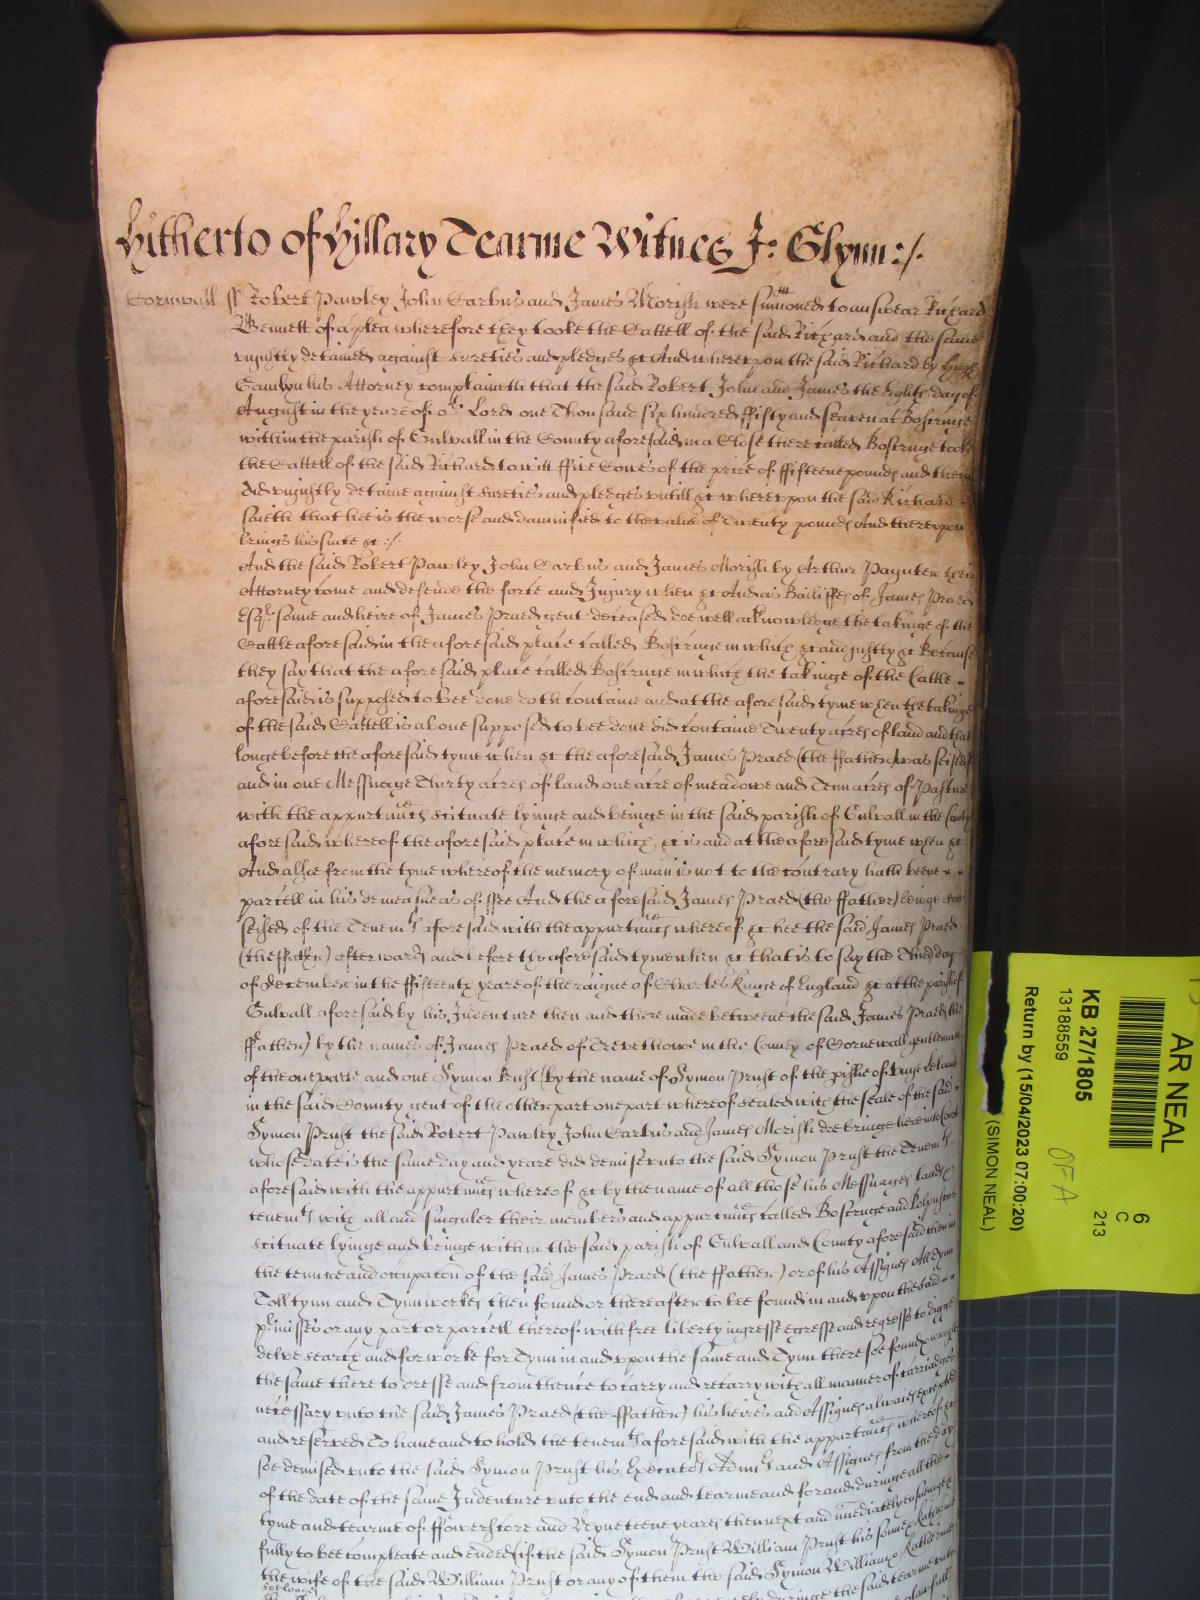 Hitherto of Hillary Tearme Witnes Jo: Glynn:/.
Cornwall ss Robert Pawley John Carbus and James Morish were sumoned to answear Richard
Bennett of a plea wherefore they tooke the Cattell of the said Richard and the same
uniustly detained against sureties and pledges &c And whereupon the said Richard by Hugh
Camlyn his Attorney complaineth that the said Robert John and James the Eight day of
August in the yeare of or Lord one Thousand six hundred fifty and seaven at Bostruge
within the parish of Gulvall in the County aforesaid in a Close there called Bostruge tooke
the Cattell of the said Richard to witt ffive Cowes of the price of ffifteene pounds and them
did uniustly detaine against sureties and pledges untill &c whereupon the said Richard
saieth that hee is the worse and damnified to the value of Twenty pounds And thereupon
brings his suite &c:/.
And the said Robert Pawley John Carbus and James Morish by Arthur Paynter their
Attorney come and defende the force and Injury when &c And as Bailiffes of James Praed
Esqr sonne and heire of James Praed gent deceased doe well acknowledge the takinge of the
Cattle aforesaid in the aforesaid place called Bostruge in which &c and justly &c Because
they say that the aforesaid place called Bostruge in which the takinge of the Cattle
aforesaid is supposed to bee done doth containe and at the aforesaid tyme when the takinge
of the said Cattell is above supposed to bee done did containe Twenty acres of land and that
longe before the aforesaid tyme when &c the aforesaid James Praed (the ffather) was seised
and in one Messuage Thirty acres of land one acre of meadowe and Tenn acres of Pasture
with the appurtnncs scituate lyinge and beinge in the said parish of Gulvall in the County
aforesaid whereof the aforesaid place in which &c is and at the aforesaid tyme when &c
And alsoe from the tyme whereof the memory of man is not to the contrary hath beene
parcell in his demeasneas of ffee And the aforesaid James Praed (the ffather) beinge soe
seised of the Tenemts aforesaid with the appurtnncs whereof &c hee the said James Praed
(the ffather) afterwards and before the aforesaid tyme when &c that is to say the Third day
of December in the ffifteenth yeare of the raigne of Charles Kinge of England &c at the parish of
Gulvall aforesaid by his Indenture then and there made betweene the said James Praed the
ffather) by the names of James Praed of Trevethowe in the County of Cornewall gentleman
of the one parte and one Symon Prust (by the name of Symon Prust of the pishe of Unye Lelant
in the said County gent of the other part one part whereof sealed with the seale of the said
Symon Prust the said Robert Pawley John Carbus and James Morish doe bringe here into Court
whose date is the same day and yeare did demise unto the said Symon Prust the Tenemts
aforesaid with the appurtnncs whereof &c by the name of all those his Messuages lands
tenemts with all and singuler their members and appurtnncs called Bostruge and
scituate lyinge and beinge within the said parish of Gulvall and County aforesaid then in
the tenure and occupacon of the said James Praed (the ffather) or of his Assignes All Tynn
Toll tynn and Tynn workes then found or thereafter to bee found in and upon the said
pmisses or any part or parcell thereof with free liberty ingresse egresse and regresse to digge
delve search and for worke for Tynn in and upon the same and Tynn there soe found
the same there to dresse and from thence to carry and recarry with all manner of carriadges
necessary unto the said James Praed (the ffather) his heires and Assignes alwaies excepted
and reserved To have and to hold the tenemts aforesaid with the appurtnncs whereof &c
soe demised unto the said Symon Prust his Executors Admrs and Assignes from the day
of the date of the same Indenture unto the end and tearme and for and duringe all the
tyme and tearme of ffowerscore and Nyneteene yeares then next and imediately ensuinge
fully to bee compleate and ended if the said Symon Prust William Prust his sonne Katherine
the wife of the said William Prust or any of them the said Symon William & Katherine
soe longe duringe the said tearme